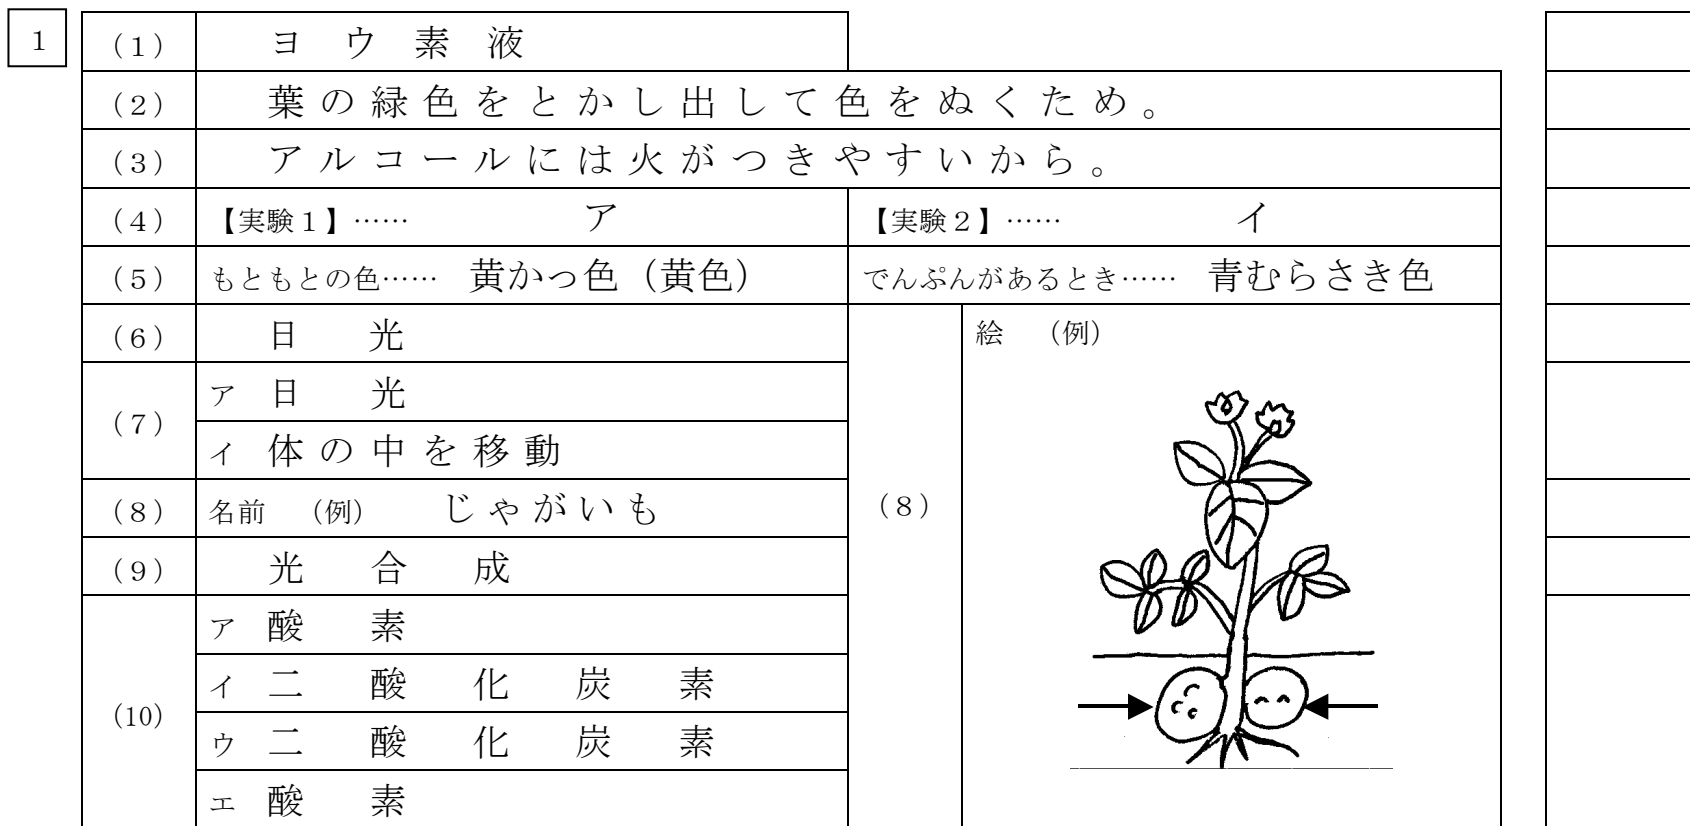 1
(1) ヨウ素液
(2) 葉の緑色をとかし出して色をぬくため。
(3) アルコールには火がつきやすいから。
(4) 【実験1】…… ア 【実験2】…… イ
(5) もともとの色…… 黄かっ色(黄色) でんぷんがあるとき…… 青むらさき色
(6) 日光
(7) ア 日光
イ 体の中を移動
(8) 名前 (例) じゃがいも
(8) 絵 (例)
(9) 光合成
(10) ア 酸素
イ 二酸化炭素
ウ 二酸化炭素
エ 酸素